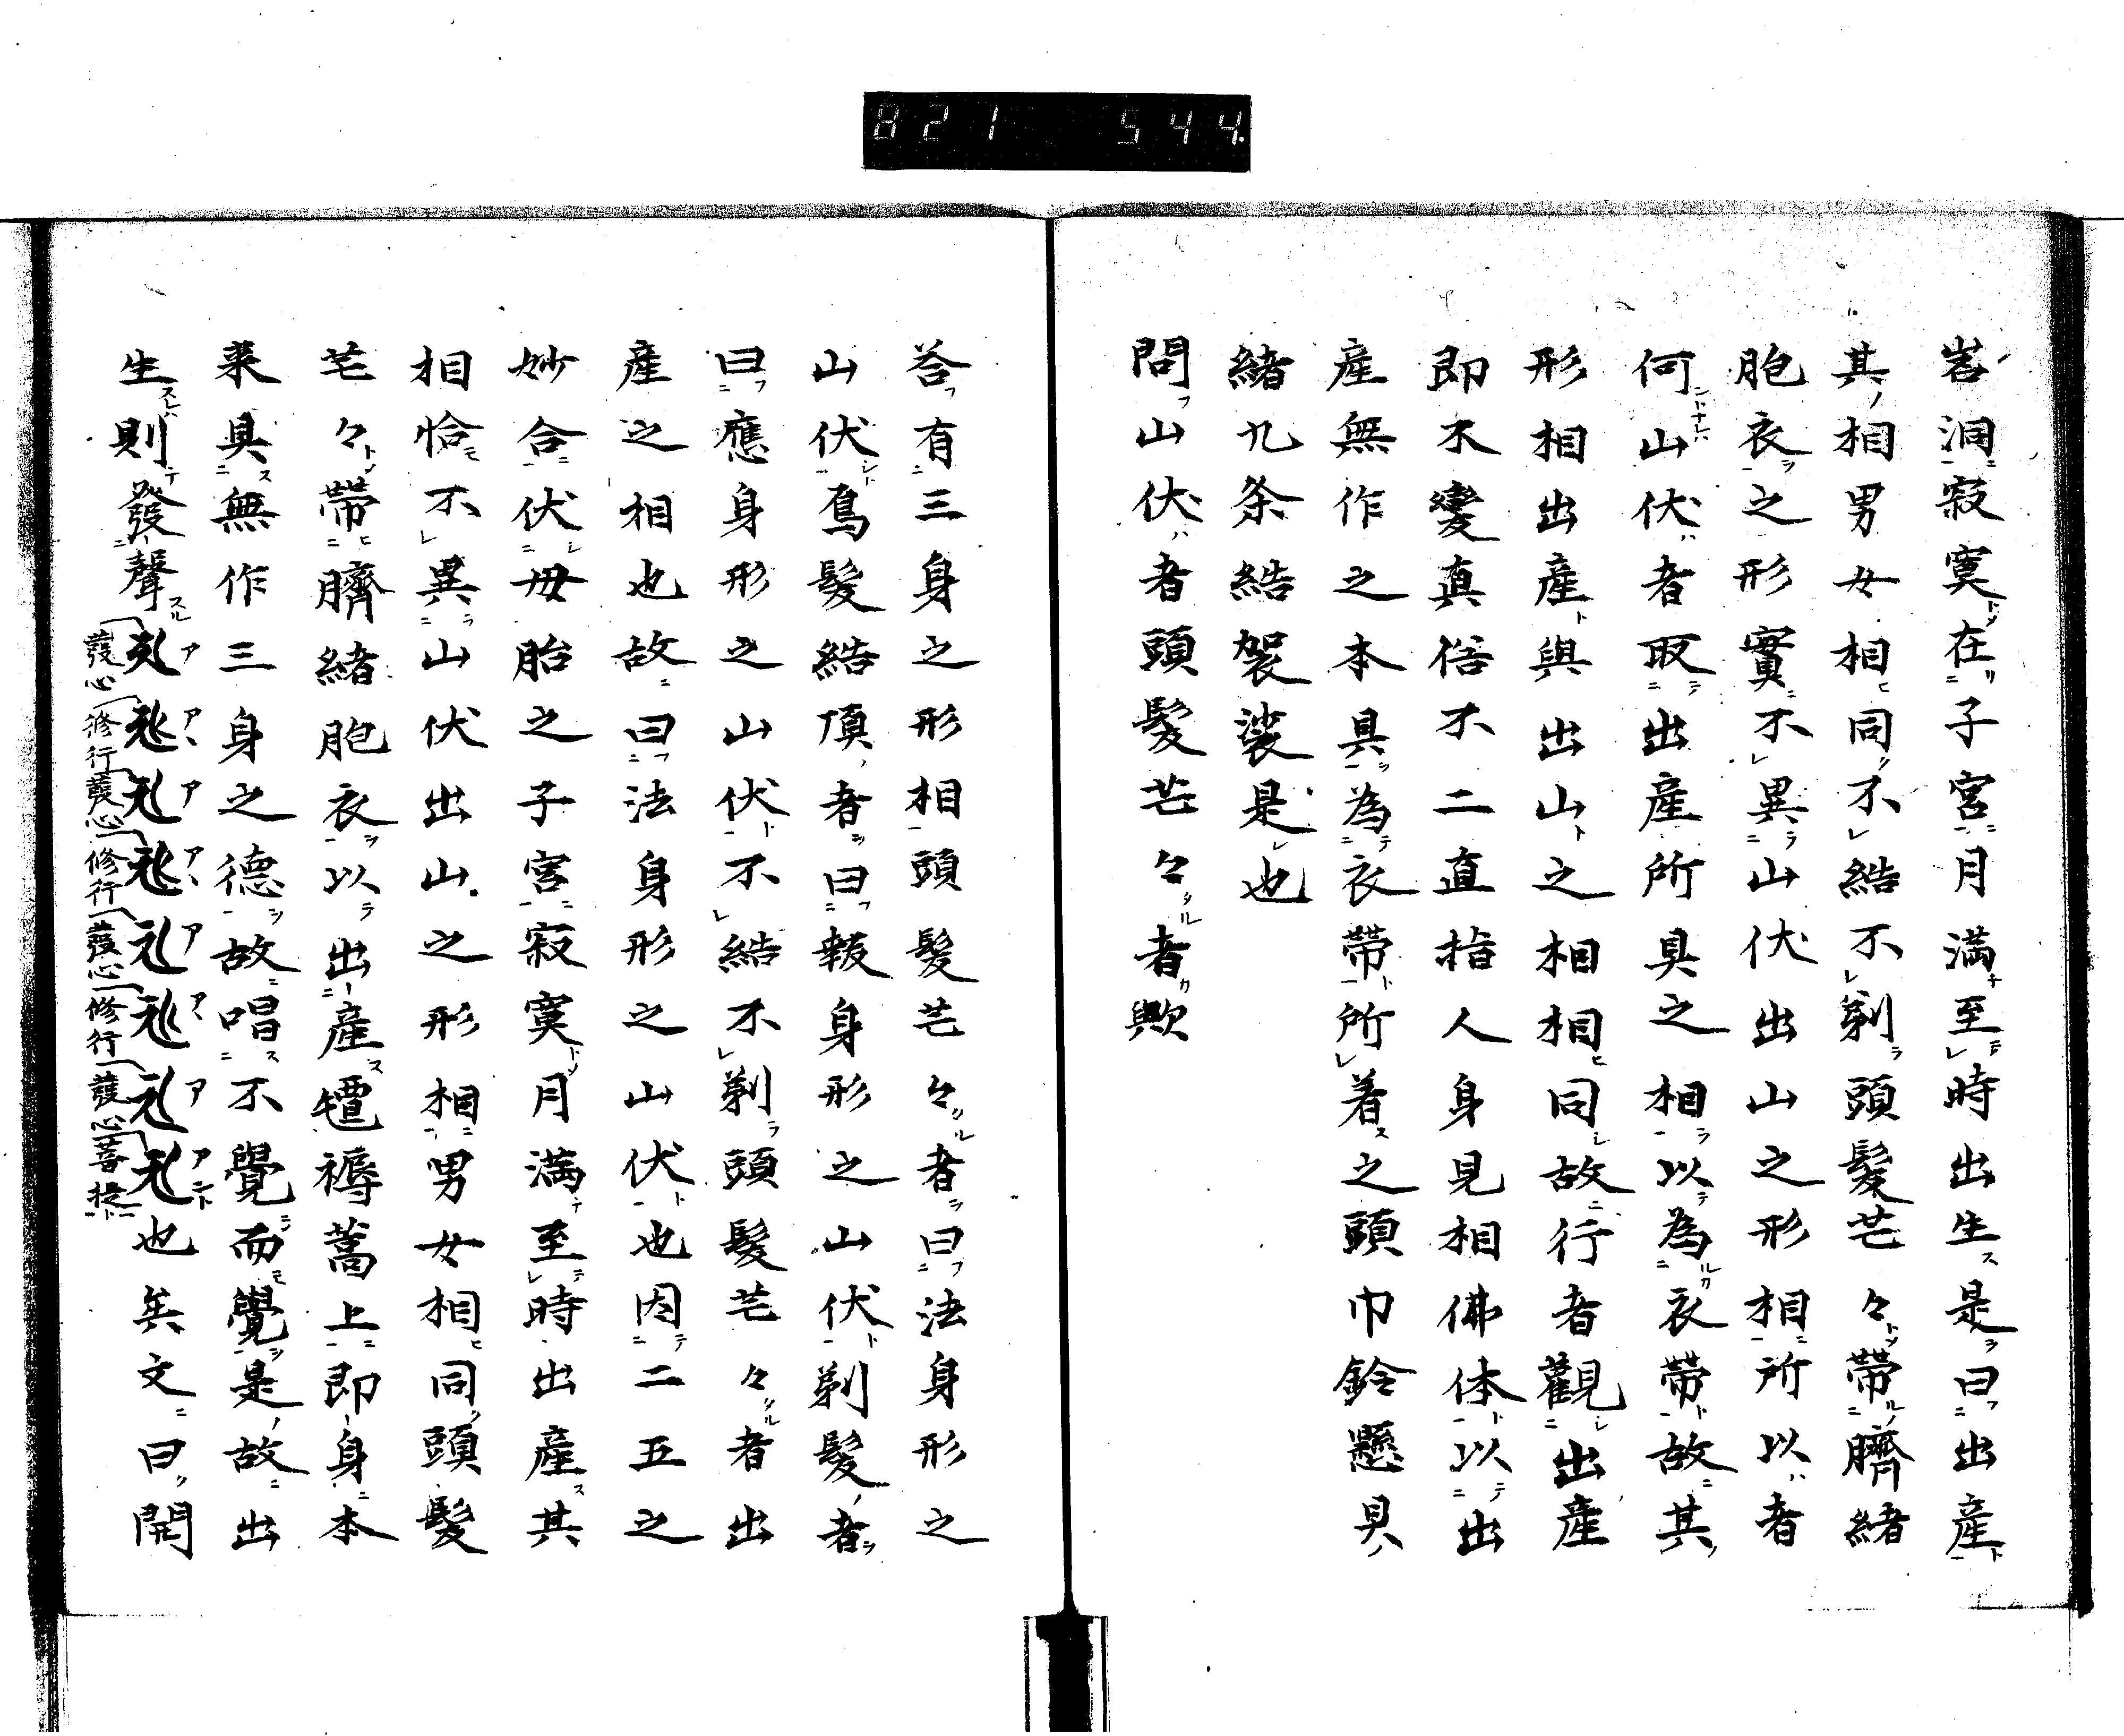 821 544
峉洞寂寞在子宮月滿至時出生是曰出產
其相男女相同不結不剃頭髮芒々帶臍緒
胞衣之形實不異山伏出山之形相所以者
何山伏者取出產所具之相以為衣帶故其
形相出產與出山之相相同故行者觀出產
即不變真俗不二直指人身見相佛体以出
產無作之本具為衣帶所着之頭巾鈴懸具
緒九条結袈裟是也
問山伏者頭髮芒々者歟
答有三身之形相頭髮芒々者曰法身形之
山伏鬼髮結頂者曰報身形之山伏剃髮者
曰應身形之山伏不結不剃頭髮芒々者出
產之相也故曰法身形之山伏也因二五之
妙合伏母胎之子宮寂寞月滿至時出產其
相恰不異山伏出山之形相男女相同頭髮
芒々帶臍緒胞衣以出產氊褥蒿上即身本
来具無作三身之德故唱不覺而覺是故出
生則發聲也矣文曰開
アアヽアアヽアアヽアアント
發心修行發心修行發心修行發心菩提